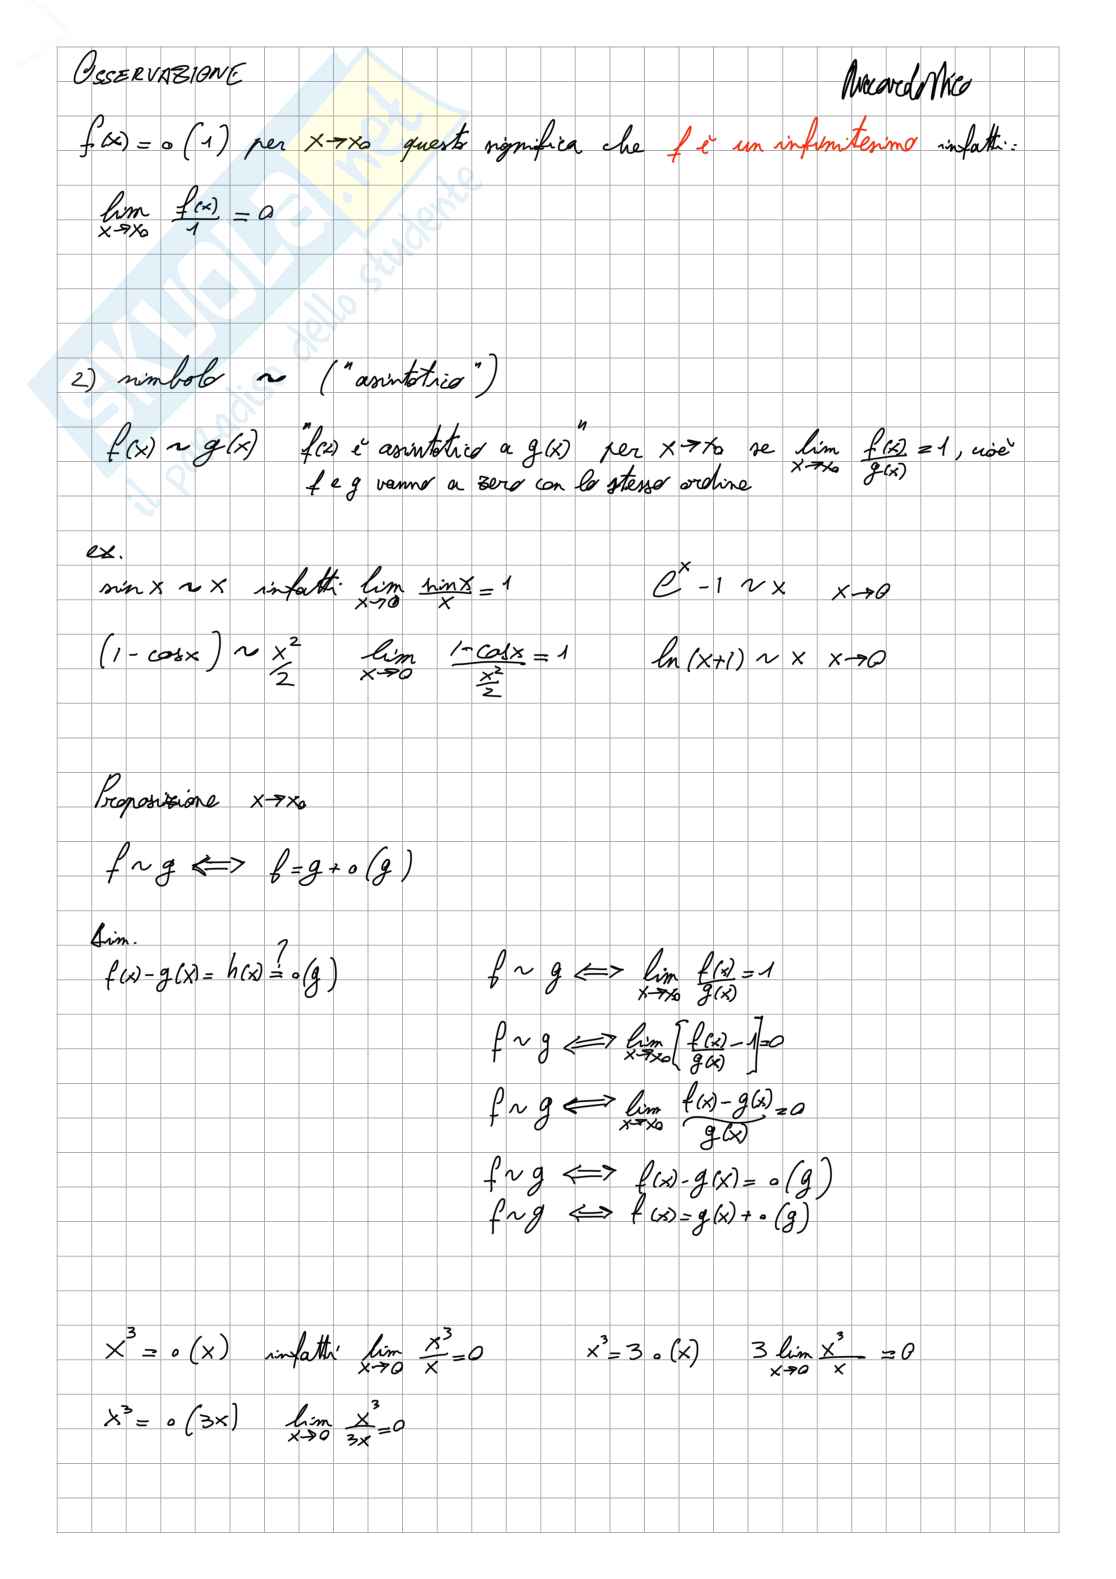 OSSERVAZIONE
f(x) = o(1) per x→x₀ questo significa che f è un infinitesimo infatti:
lim x→x₀ f(x)/1 = 0
2) simbolo ~ ("asintotico")
f(x) ~ g(x) "f(x) è asintotico a g(x)" per x→x₀ se lim x→x₀ f(x)/g(x) = 1, cioè
f e g vanno a zero con lo stesso ordine
ex.
sin x ~ x infatti lim x→0 sin x/x = 1 e^x - 1 ~ x x→0
(1 - cos x) ~ x²/2 lim x→0 (1 - cos x)/(x²/2) = 1 ln(x+1) ~ x x→0
Proposizione x→x₀
f ~ g ⟺ f = g + o(g)
Dim.
f(x) - g(x) = h(x) =? o(g) f ~ g ⟺ lim x→x₀ f(x)/g(x) = 1
f ~ g ⟺ lim x→x₀ [f(x)/g(x) - 1] = 0
f ~ g ⟺ lim x→x₀ (f(x) - g(x))/g(x) = 0
f ~ g ⟺ f(x) - g(x) = o(g)
f ~ g ⟺ f(x) = g(x) + o(g)
x³ = o(x) infatti lim x→0 x³/x = 0 x³ = 3 o(x) 3 lim x→0 x³/x = 0
x³ = o(3x) lim x→0 x³/3x = 0
SKUOLA.net
il paradiso dello studente